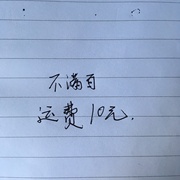 不满百
运费10元.